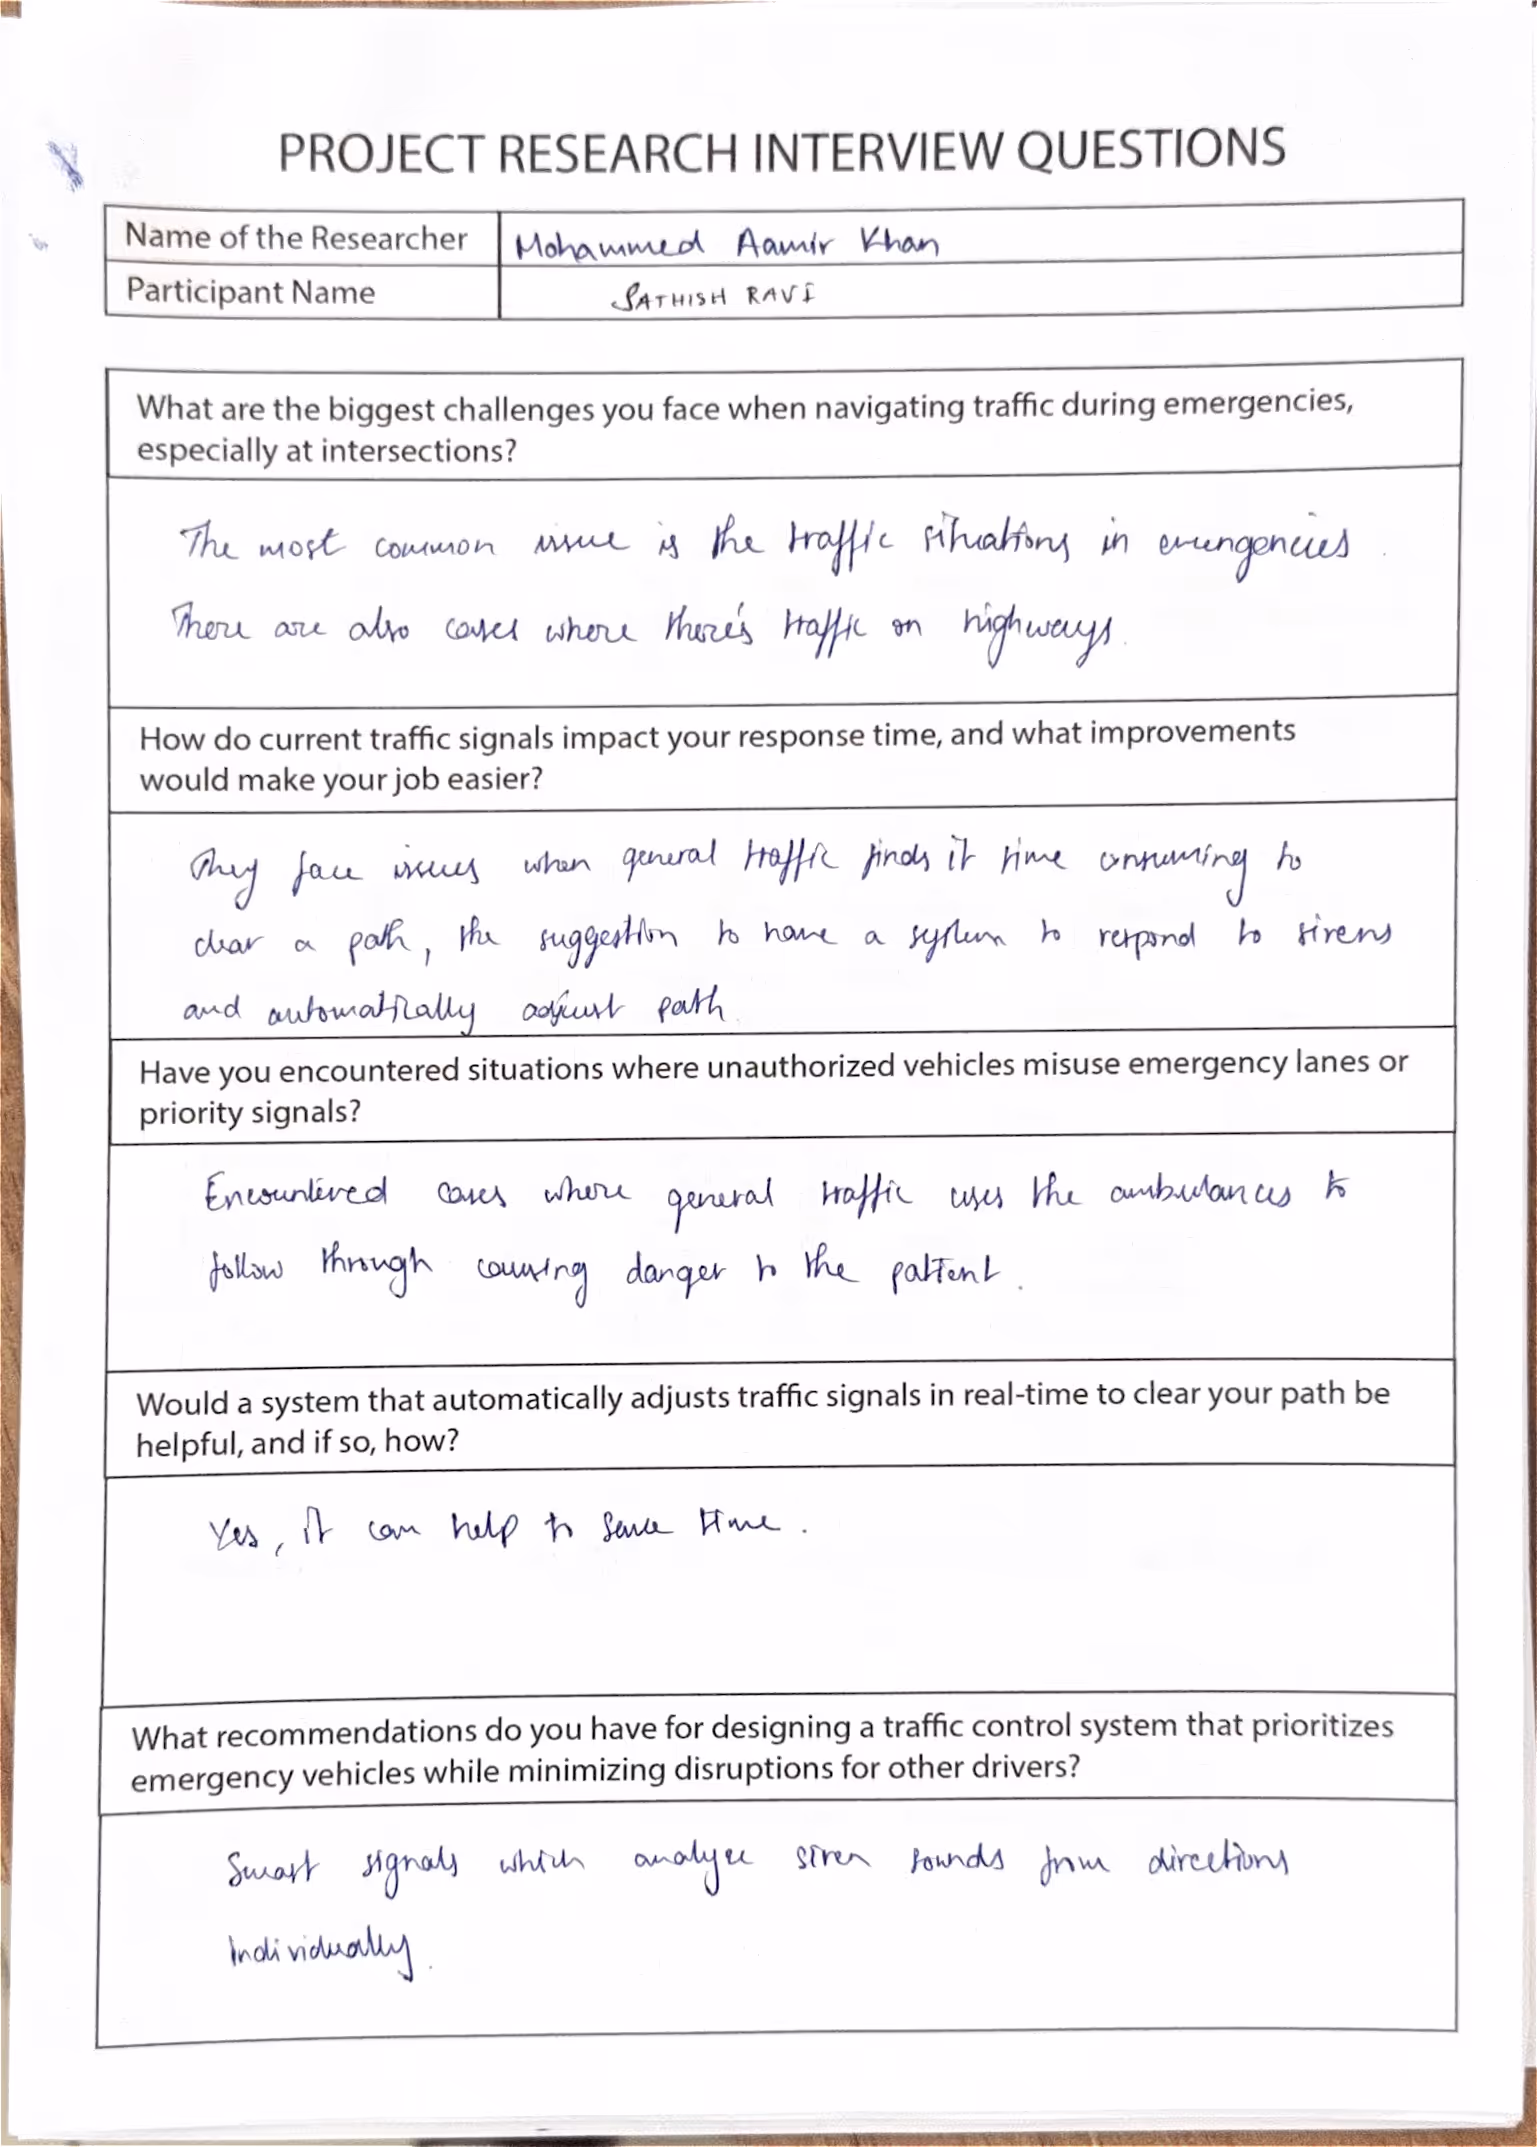 PROJECT RESEARCH INTERVIEW QUESTIONS
Name of the Researcher Mohammed Aamir Khan
Participant Name SATHISH RAVI
What are the biggest challenges you face when navigating traffic during emergencies,
especially at intersections?
The most common issue is the traffic situations in emergencies.
There are also cases where there's traffic on highways.
How do current traffic signals impact your response time, and what improvements
would make your job easier?
They face issues when general traffic finds it time consuming to
clear a path, the suggestion to have a system to respond to sirens
and automatically adjust path.
Have you encountered situations where unauthorized vehicles misuse emergency lanes or
priority signals?
Encountered cases where general traffic uses the ambulances to
follow through causing danger to the patient.
Would a system that automatically adjusts traffic signals in real-time to clear your path be
helpful, and if so, how?
Yes, it can help to save time.
What recommendations do you have for designing a traffic control system that prioritizes
emergency vehicles while minimizing disruptions for other drivers?
Smart signals which analyze siren sounds from directions
individually.